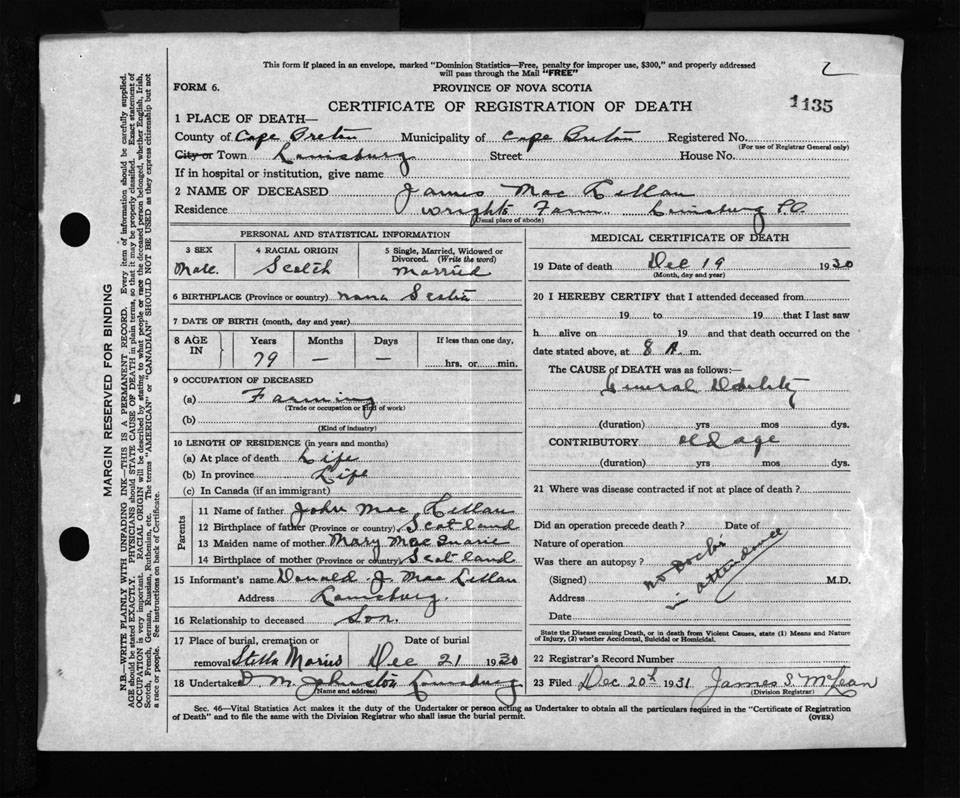 This form if placed in an envelope, marked "Dominion Statistics—Free, penalty for improper use, $300," and properly addressed
will pass through the Mail "FREE"
2
FORM 6.
PROVINCE OF NOVA SCOTIA
CERTIFICATE OF REGISTRATION OF DEATH
1135
1 PLACE OF DEATH—
County of Cape Breton Municipality of Cape Breton Registered No.
(For use of Registrar General only)
City or Town Louisburg Street House No.
If in hospital or institution, give name
2 NAME OF DECEASED James Mac Lellan
Residence Wrights Farm Louisburg P.O.
(Usual place of abode)
PERSONAL AND STATISTICAL INFORMATION
3 SEX
Male.
4 RACIAL ORIGIN
Scotch
5 Single, Married, Widowed or
Divorced. (Write the word)
Married
6 BIRTHPLACE (Province or country) Nova Scotia
7 DATE OF BIRTH (month, day and year)
8 AGE
IN
Years
79
Months
—
Days
—
If less than one day,
hrs. or min.
9 OCCUPATION OF DECEASED
(a) Farming
(Trade or occupation or kind of work)
(b)
(Kind of industry)
10 LENGTH OF RESIDENCE (in years and months)
(a) At place of death Life
(b) In province Life
(c) In Canada (if an immigrant)
Parents
11 Name of father John Mac Lellan
12 Birthplace of father (Province or country) Scotland
13 Maiden name of mother Mary Mac
14 Birthplace of mother (Province or country) Scotland
15 Informant's name Donald J. Mac Lellan
Address Louisburg.
16 Relationship to deceased Son.
17 Place of burial, cremation or
removal Stella Maris
Date of burial
Dec 21 1930
18 Undertaker D M. Johnston Louisburg
(Name and address)
MEDICAL CERTIFICATE OF DEATH
19 Date of death Dec 19 1930
(Month, day and year)
20 I HEREBY CERTIFY that I attended deceased from
19 to 19 that I last saw
h alive on 19 and that death occurred on the
date stated above, at 8 A. m.
The CAUSE of DEATH was as follows:—
General Debility
(duration) yrs mos dys.
CONTRIBUTORY old age
(duration) yrs mos dys.
21 Where was disease contracted if not at place of death?
Did an operation precede death? Date of
Nature of operation
Was there an autopsy?
(Signed) M.D.
Address
Date
no Doctor
in attendance
State the Disease causing Death, or in death from Violent Causes, state (1) Means and Nature
of Injury, (2) whether Accidental, Suicidal or Homicidal.
22 Registrar's Record Number
23 Filed Dec 20th 1931 James S. McLean
(Division Registrar)
Sec. 46—Vital Statistics Act makes it the duty of the Undertaker or person acting as Undertaker to obtain all the particulars required in the "Certificate of Registration
of Death" and to file the same with the Division Registrar who shall issue the burial permit.
(OVER)
MARGIN RESERVED FOR BINDING
N.B.—WRITE PLAINLY WITH UNFADING INK—THIS IS A PERMANENT RECORD. Every item of information should be carefully supplied.
AGE should be stated EXACTLY. PHYSICIANS should STATE CAUSE OF DEATH in plain terms, so that it may be properly classified. Exact statement of
OCCUPATION is very important. RACIAL ORIGIN will be described by stating to what people or race the deceased person belonged, whether English, Irish,
Scotch, French, German, Russian, Ruthenian, etc. The terms "AMERICAN" or "CANADIAN" SHOULD NOT BE USED as they express citizenship but not
a race or people. See instructions on back of Certificate.